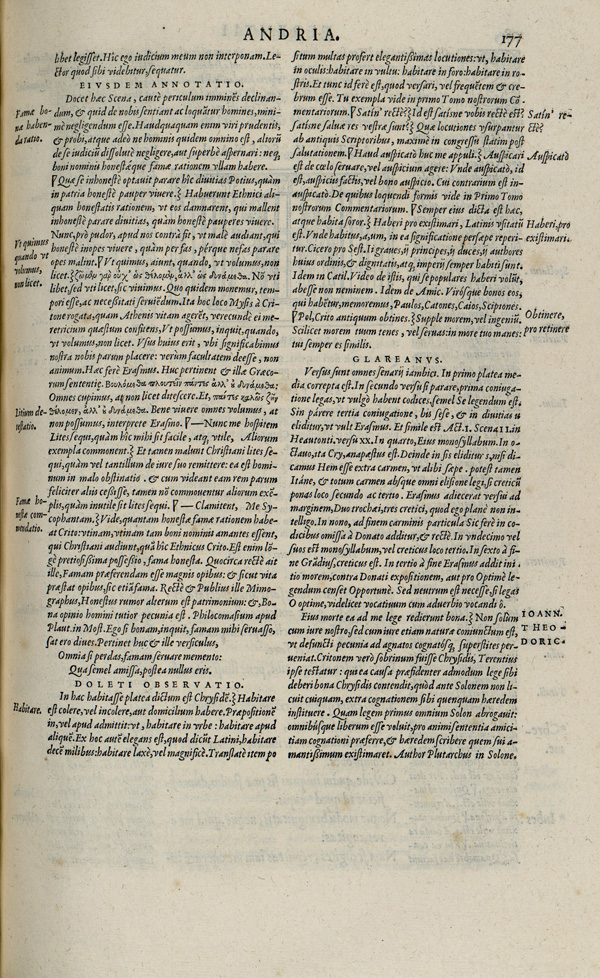 ANDRIA. 177
hbet legisset. Hic ego iudicium meum non interponam. Le-
ctor quod sibi videbitur, sequatur.
EIVSDEM ANNOTATIO.
Docet hæc Scena, cautè periculum imminēs declinan-
dum, & quid de nobis sentiant ac loquātur homines, mini-
mè negligendum esse. Haudquaquam enim viri prudentis,
& probi, atque adeò ne hominis quidem omnino est, aliorū
de se iudiciū dissolutè negligere, aut superbè aspernari: neq,
boni nominis honestǽque famæ rationem vllam habere.
Famæ bo-
næ haben-
da ratio.
¶ Quæ se inhonestè optauit parare hîc diuitias Potius, quàm
in patria honestè pauper viuere. Habuerunt Ethnici ali-
quam honestatis rationem, vt eos damnarent, qui mallent
inhonestè parare diuitias, quàm honestè pauperes viuere.
Nunc, prò pudor, apud nos contrà fit, vt malè audiant, qui
honestè inopes viuere, quàm per fas, pérque nefas parare
opes malint. ¶ Vt quimus, aiunt, quando, vt volumus, non
licet. ζῶμεν γὰρ οὐχ' ὡς θέλομεν, ἀλλ' ὡς δυνάμεθα. Nō vti
libet, sed vti licet, sic viuimus. Quo quidem monemur, tem-
pori esse, ac necessitati seruiēdum. Ita hoc loco Mysis à Cri-
tone rogata, quam Athenis vitam ageret, verecundè ei me-
retricium quæstum confitens, Vt possumus, inquit, quando,
vt volumus, non licet. Vsus huius erit, vbi significabimus
nostra nobis parum placere: verùm facultatem deesse, non
animum. Hæc ferè Erasmus. Huc pertinent & illæ Græco-
rum sententiæ. Βουλόμεθα πλουτεῖν πάντες ἀλλ' οὐ δυνάμεθα:
Omnes cupimus, at non licet ditescere. Et, πάντες καλῶς ζῆν
θέλομεν, ἀλλ' οὐ δυνάμεθα. Bene viuere omnes volumus, at
non possumus, interprete Erasmo. ¶ —Nunc me hospitem
Lites sequi, quàm hîc mihi sit facile, atq, vtile, Aliorum
exempla commonent. Et tamen malunt Christiani lites se-
qui, quàm vel tantillum de iure suo remittere: ea est homi-
num in malo obstinatio. & cum videant eam rem parum
feliciter aliis cessisse, tamen nō commouentur aliorum exē-
plis, quàm inutile sit lites sequi. ¶ — Clamitent, Me Sy-
cophantam. Vide, quantam honestæ famæ rationem habe-
at Crito: vtinam, vtinam tam boni nominis amantes essent,
qui Christiani audiunt, quā hîc Ethnicus Crito. Est enim lō-
gè pretiosissima possessio, fama honesta. Quocirca rectè ait
ille, Famam præferendam esse magnis opibus: & sicut vita
præstat opibus, sic etiā fama. Rectè & Publius ille Mimo-
graphus, Honestus rumor alterum est patrimonium: & , Bo-
na opinio homini tutior pecunia est. Philocomasium apud
Plaut. in Most. Ego si bonam, inquit, famam mihi seruasso,
sat ero diues. Pertinet huc & ille versiculus,
Omnia si perdas, famam seruare memento:
Qua semel amissa, postea nullus eris.
Vt quimus
quando vt
volumus,
non licet.
Litium de-
testatio.
Famæ ho-
nestæ com-
mendatio.
DOLETI OBSERVATIO.
In hac habitasse platea dictum est Chrysidē. Habitare
est colere, vel incolere, aut domicilium habere. Præpositionē
in, vel apud admittit: vt, habitare in vrbe: habitare apud
aliquē. Ex hoc autē elegans est, quod dicūt Latini, habitare
decē milibus: habitare laxè, vel magnificè. Translatè item po
Habitare.
situm multas profert elegantissimas locutiones: vt, habitare
in oculis: habitare in vultu: habitare in foro: habitare in ro-
stris. Et tunc id ferè est, quod versari, vel frequētem & cre-
brum esse. Tu exempla vide in primo Tomo nostrorum Cō-
mentariorum. ¶ Satin' rectè? Id est satisne vobis rectè est?
satisne saluæ res vestræ sunt? Quæ locutiones vsurpantur
ab antiquis Scriptoribus, maximè in congressu statim post
salutationem. ¶ Haud auspicatò huc me appuli. Auspicari
est de cœlo seruare, vel auspicium agere: Vnde auspicatò, id
est, auspiciis factis, vel bono auspicio. Cui contrarium est in-
auspicatò. De quibus loquendi formis vide in Primo Tomo
nostrorum Commentariorum. ¶ Semper eius dicta est hæc,
atque habita soror. Haberi pro existimari, Latinis vsitatū
est. Vnde habitus, a, um, in ea significatione persæpe reperi-
tur. Cicero pro Sest. Ii graues, ij principes, ij duces, ij authores
huius ordinis, & dignitatis, atq, imperij semper habiti sunt.
Idem in Catil. Video de istis, qui se populares haberi volūt,
abesse non neminem. Idem de Amic. Virósque bonos eos,
qui habētur, memoremus, Paulos, Catones, Caios, Scipiones.
¶ Pol, Crito antiquum obtines. Supple morem, vel ingeniū.
Scilicet morem tuum tenes, vel seruas: in more tuo manes:
tui semper es similis.
Satin' re-
ctè?
Auspicatò
Haberi, pro
existimari.
Obtinere,
pro retinere
GLAREANVS.
Versus sunt omnes senarij iambici. In primo platea me-
dia correpta est. In secundo versu si parare, prima coniuga-
tione legas, vt vulgò habent codices, semel Se legendum est.
Sin párere tertia coniugatione, bis sese, & in diuitias u
eliditur, vt vult Erasmus. Et simile est Act. 1. Scena 11. in
Heautonti. versu xx. In quarto, Eius monosyllabum. In o-
ctauo, ita Cry, anapæstus est. Deinde in sis eliditur s, nisi di-
camus Hem esse extra carmen, vt alibi sæpe. potest tamen
Itáne, & totum carmen absque omni elisione legi, si creticū
ponas loco secundo ac tertio. Erasmus adiecerat versui ad
marginem, Duo trochæi, tres cretici, quod ego planè non in-
telligo. In nono, ad finem carminis particula Sic ferè in co-
dicibus omissa à Donato additur, & rectè. In vndecimo vel
suos est monosyllabum, vel creticus loco tertio. In sexto à fi-
ne Grádius, creticus est. In tertio à fine Erasmus addit ini-
tio morem, contra Donati expositionem, aut pro Optimè le-
gendum censet Opportunè. Sed neutrum est necesse, si legas
O optime, videlicet vocatiuum cum aduerbio vocandi ô.
Eius morte ea ad me lege redierunt bona. Non solùm
cum iure nostro, sed cum iure etiam natura coniunctum est,
vt defuncti pecunia ad agnatos cognatósq, superstites per-
ueniat. Critonem verò sobrinum fuisse Chrysidis, Terentius
ipse testatur: qui ea causa præfidenter admodum lege sibi
deberi bona Chrysidis contendit, quòd ante Solonem non li-
cuit cuiquam, extra cognationem sibi quenquam hæredem
instituere. Quam legem primus omnium Solon abrogauit:
omnibúsque liberum esse voluit, pro animi sententia amici-
tiam cognationi præferre, & hæredem scribere quem sui a-
mantissimum existimaret. Author Plutarchus in Solone.
IOANN.
THEO-
DORIC.